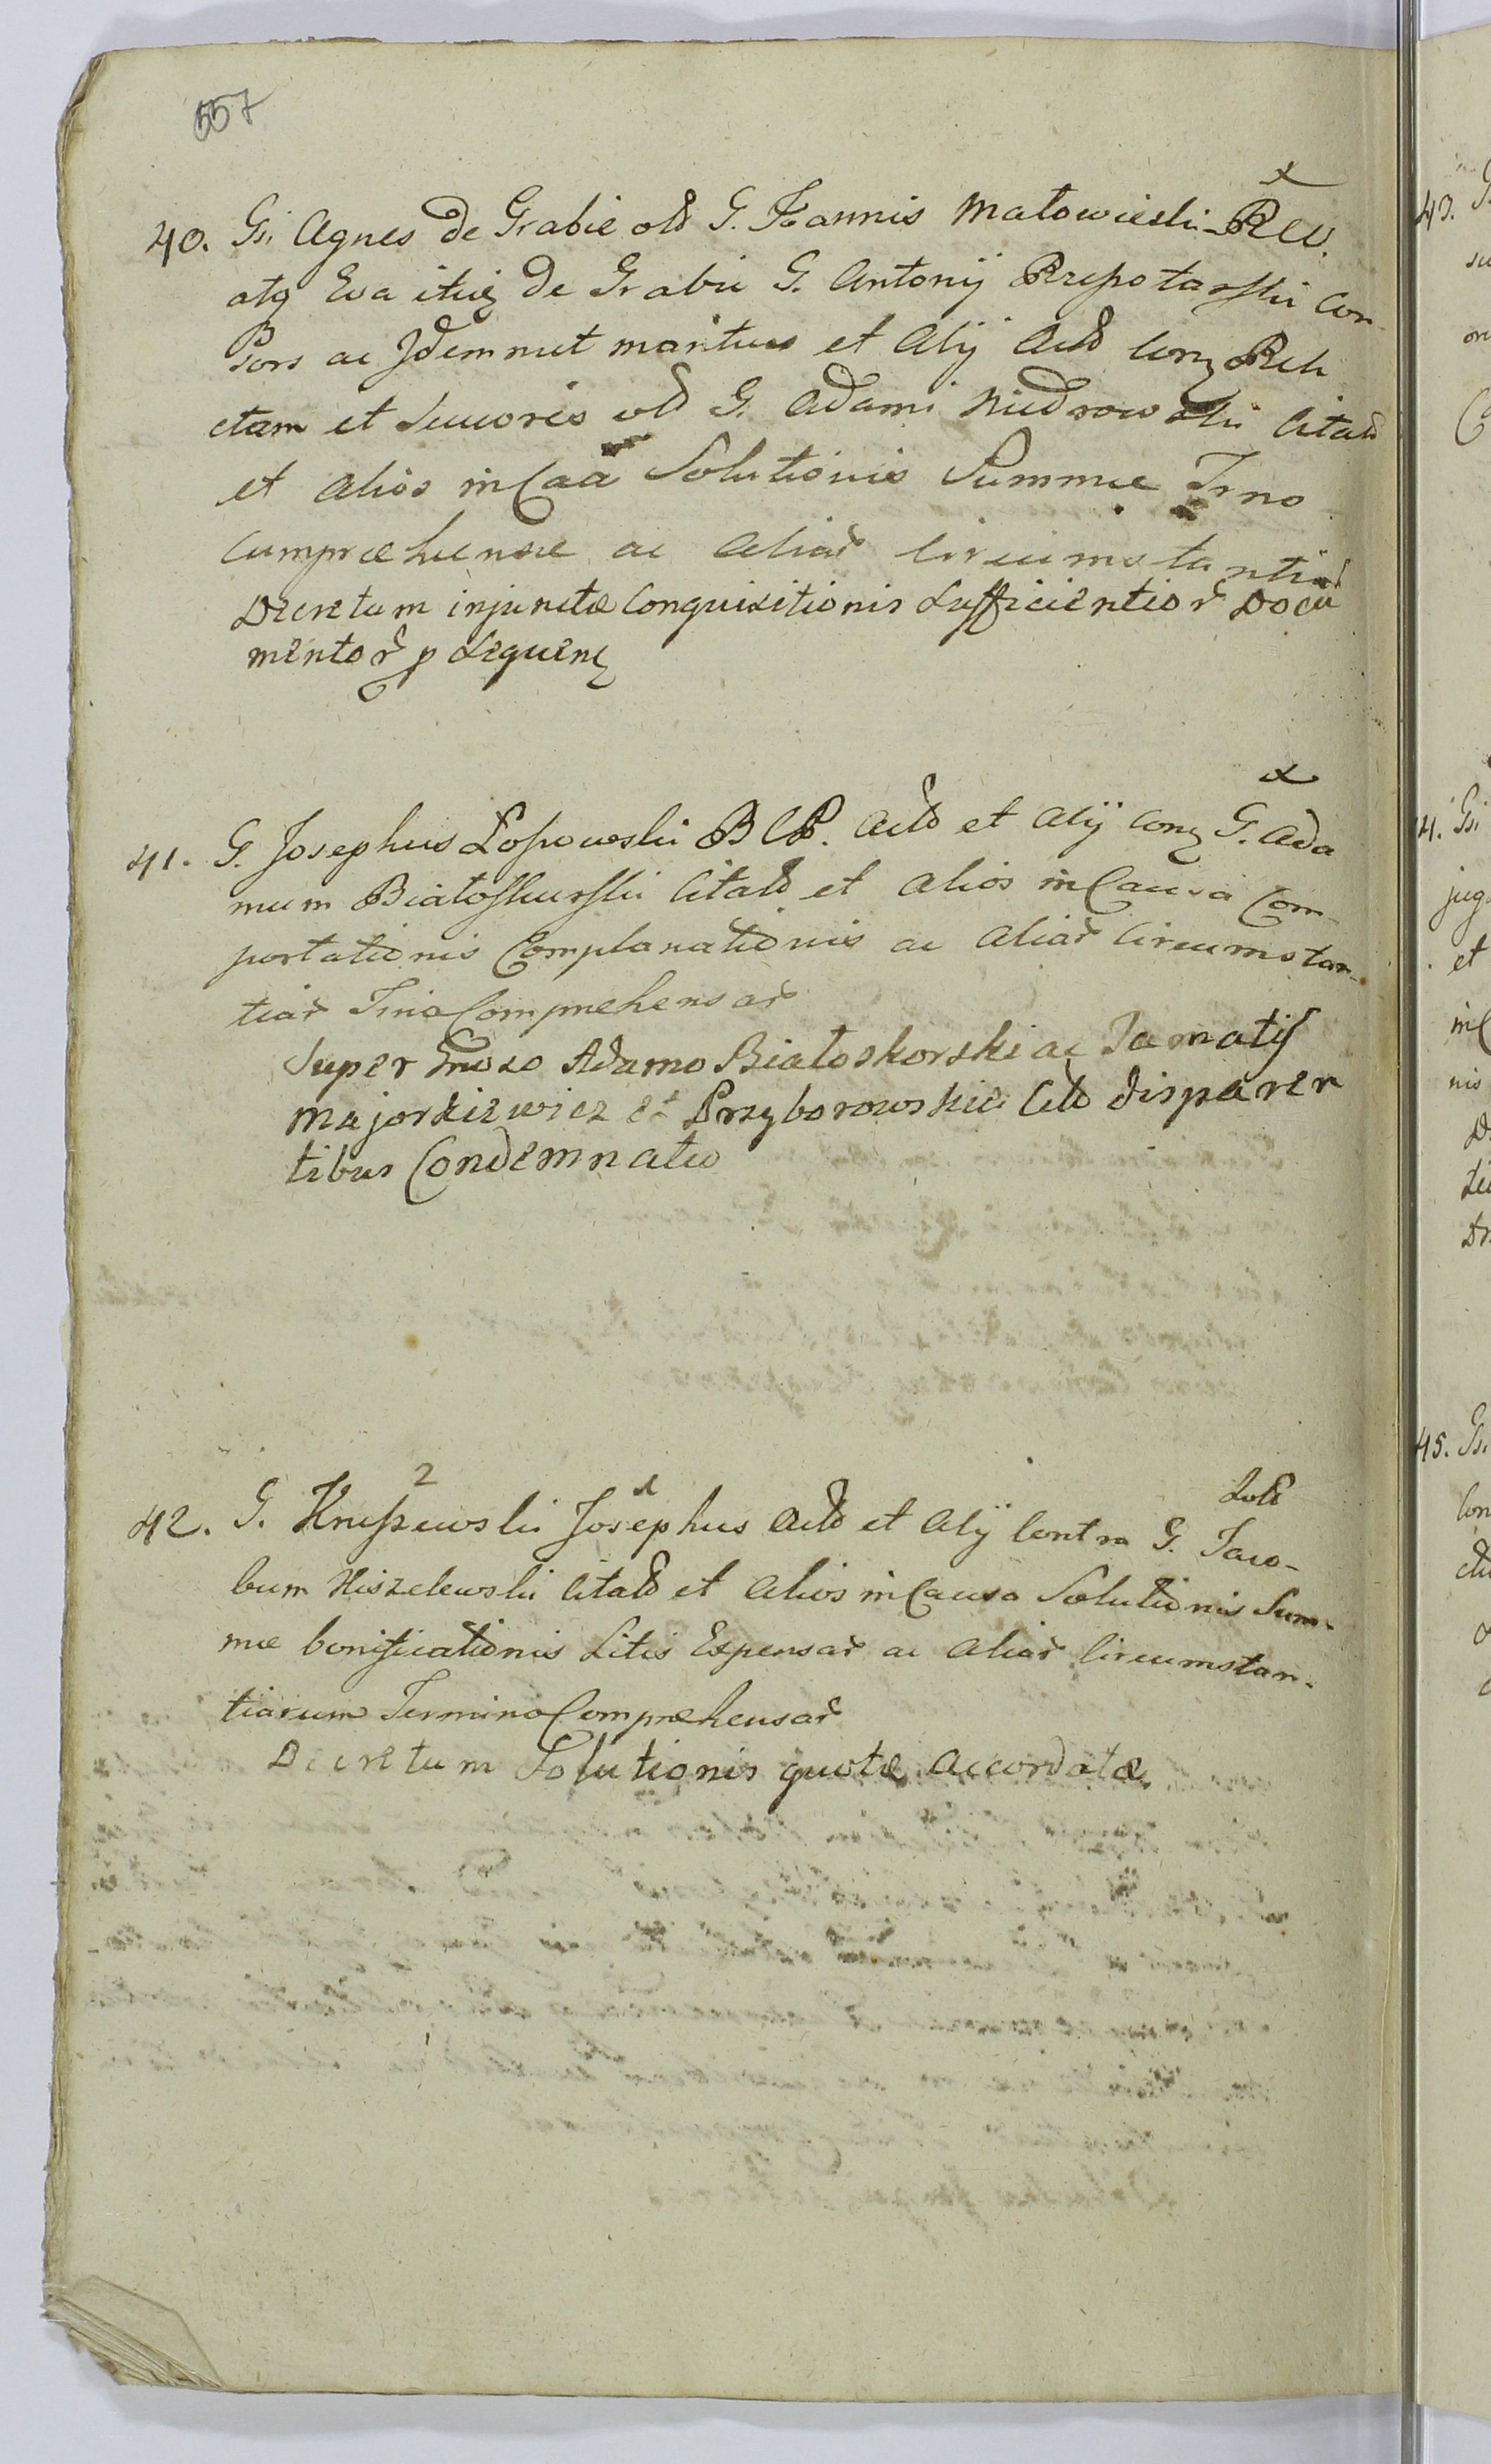 557
40. Gsi Agnes de Grabie old G. Joannis Małowieski Rel
atq Eva itiq de Grabie G. Antonij Przepotarski Con-
sors ac Jdemmet maritus et Alij Actt Conq Reli
ctam et Succores old G. Adami Niedrowski Citatt
et alios in Caa Solutionis Summæ Trno
Compræhensæ ac Aliar Circumstantiar
Decretum injunctæ Conquisitionis Sufficientior Docu
mentor p Sequenq
41. G. Josephus Łopowski B C P. Actt et Alij Conq G. Ada
mum Białoskurski Citatt et alios in Causa Com-
portationis Complanationis ac Aliar Circumstan-
tiar Trno Comprehensar
Super Gnoso Adamo Białoskorski ac Famatis
Majorkiewicz et Przyborowskie Citt disparen
tibus Condemnatio
42. G. Kruszewski Josephus Actt et Alij Contra G. Jaco-
bum Kiszelewski Citatt et Alios in Causa Solutionis Sum-
mæ bonificationis Litis Expensar ac Aliar Circumstan-
tiarum Termino Comprehensar
Decretum Solutionis quotæ Accordatæ